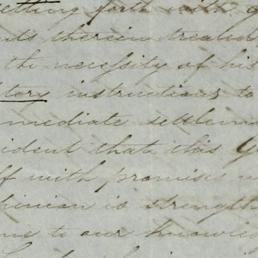 setting forth with a
therein
the necessity of his
instructions to
immediate settlem
ident that this G
ff with promises
tinian is strength
me to our knowled